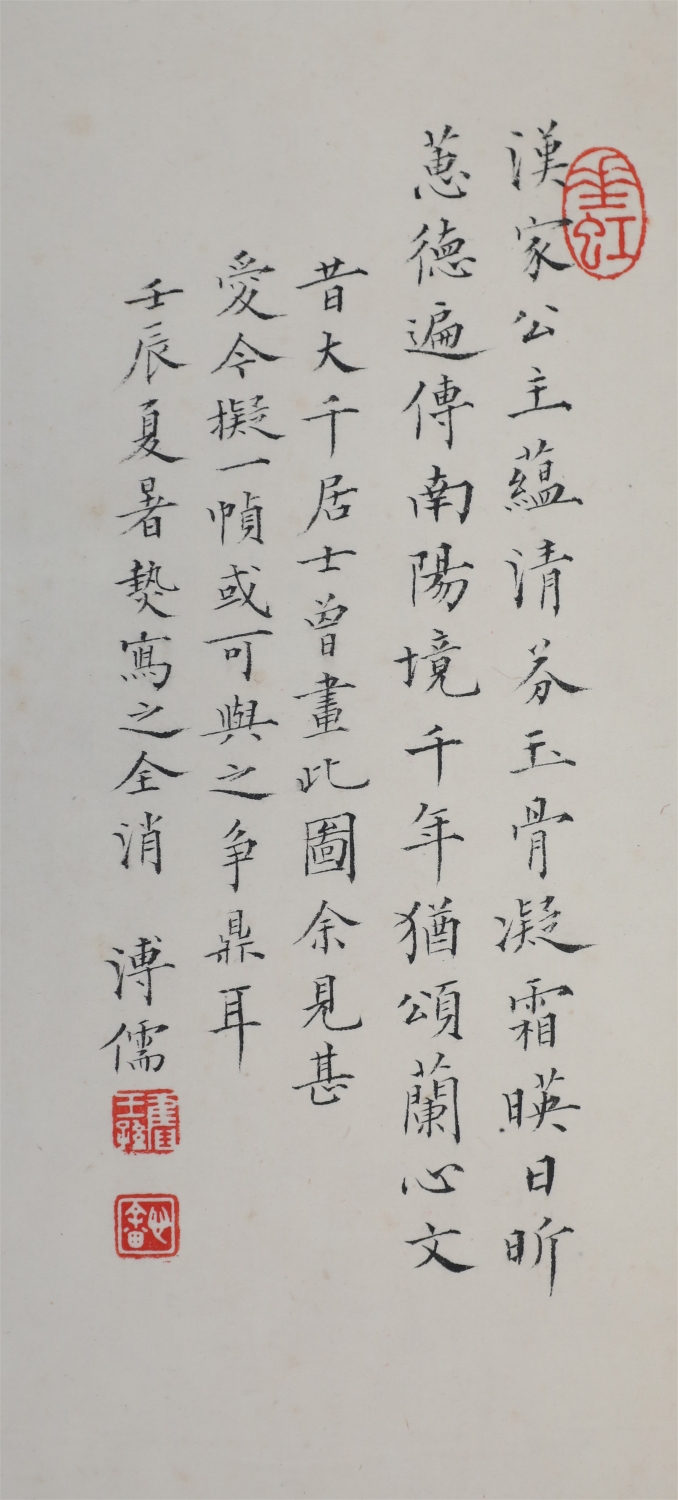 漢家公主蘊清芬玉骨凝霜暎日昕
蕙德遍傳南陽境千年猶頌蘭心文
昔大千居士曾畫此圖余見甚
愛今擬一幀或可與之爭鼎耳
壬辰夏暑熱寫之全消 溥儒